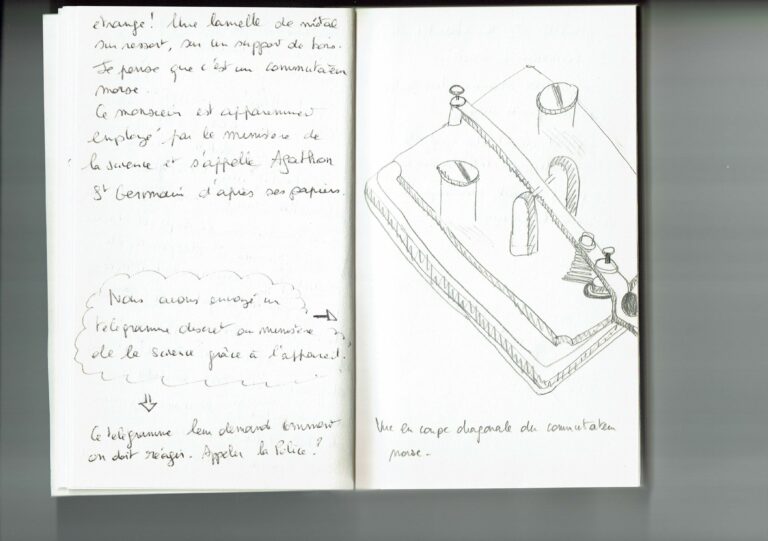 étrange! Une lamelle de métal
sur ressort, sur un support de bois.
Je pense que c'est un commutateur
morse.
Ce monsieur est apparemment
employé par le ministère de
la science et s'appelle Agathon
St Germain d'après ses papiers.
Nous avons envoyé un
télégramme discret au ministère
de la science grâce à l'appareil.
Ce télégramme leur demande comment
on doit réagir. Appeler la Police?
Vue en coupe diagonale du commutateur
morse.